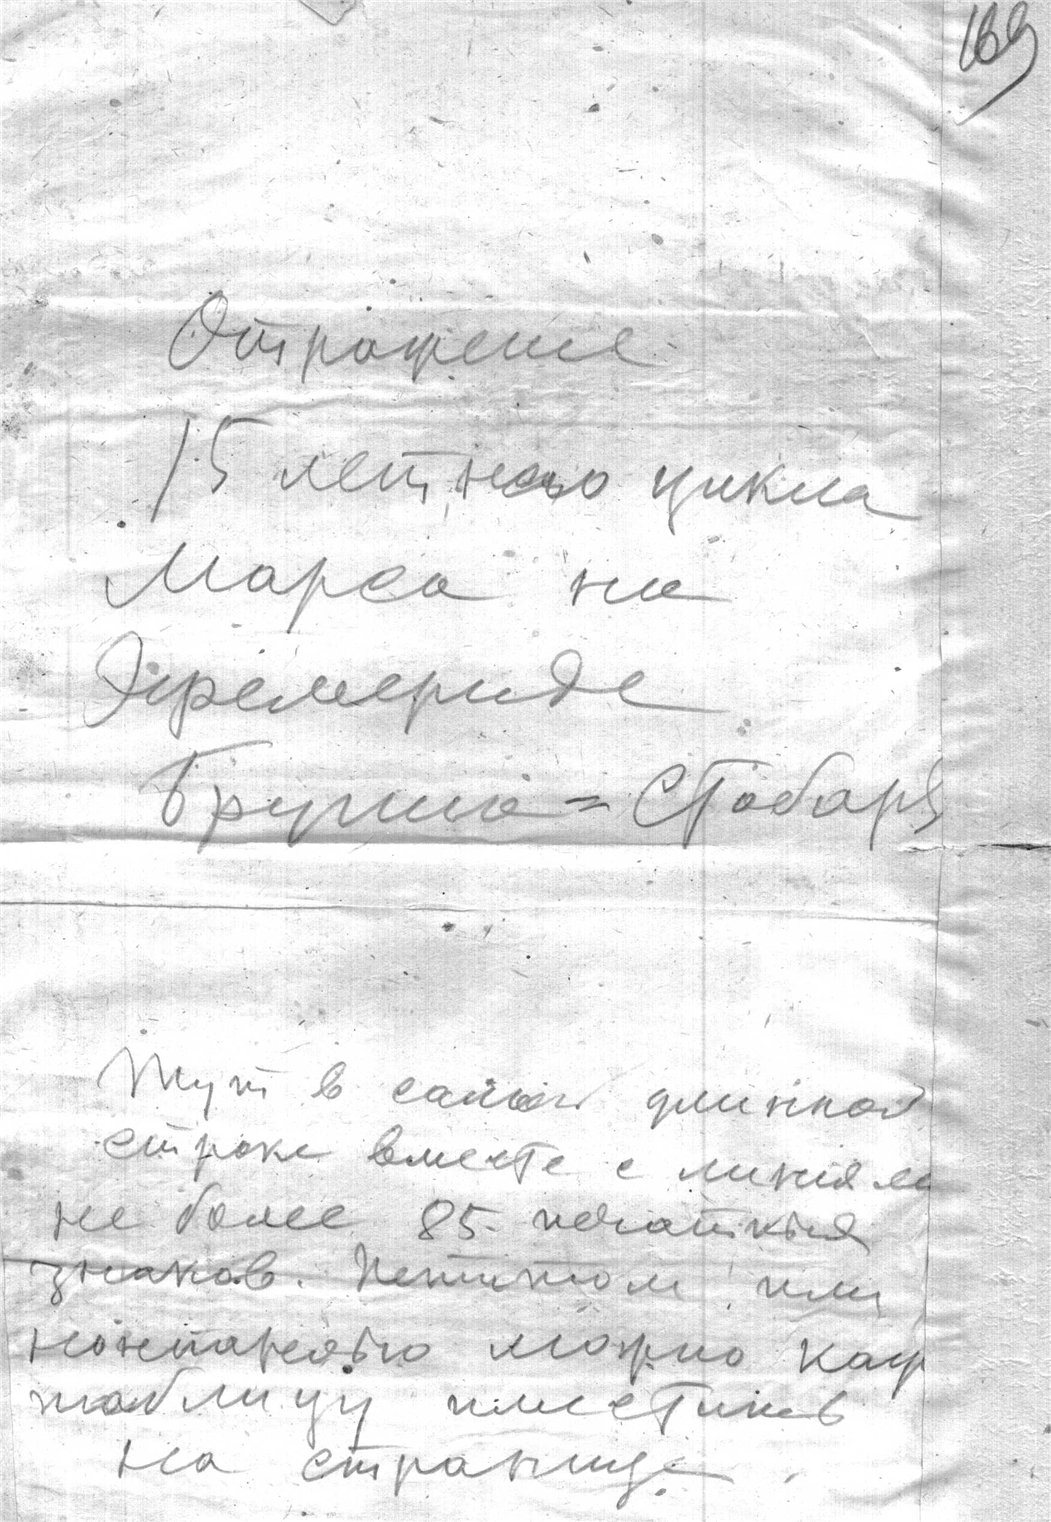 169
Отражение
15 летнего цикла
Марса на
Эфемериде
Бругша = Стобарт
Тут в самой длинной
строке вместе с линиям
не более 85 печатных
знаков. Петитом или
нонпарелью можно каж
таблицу уместить
на странице.